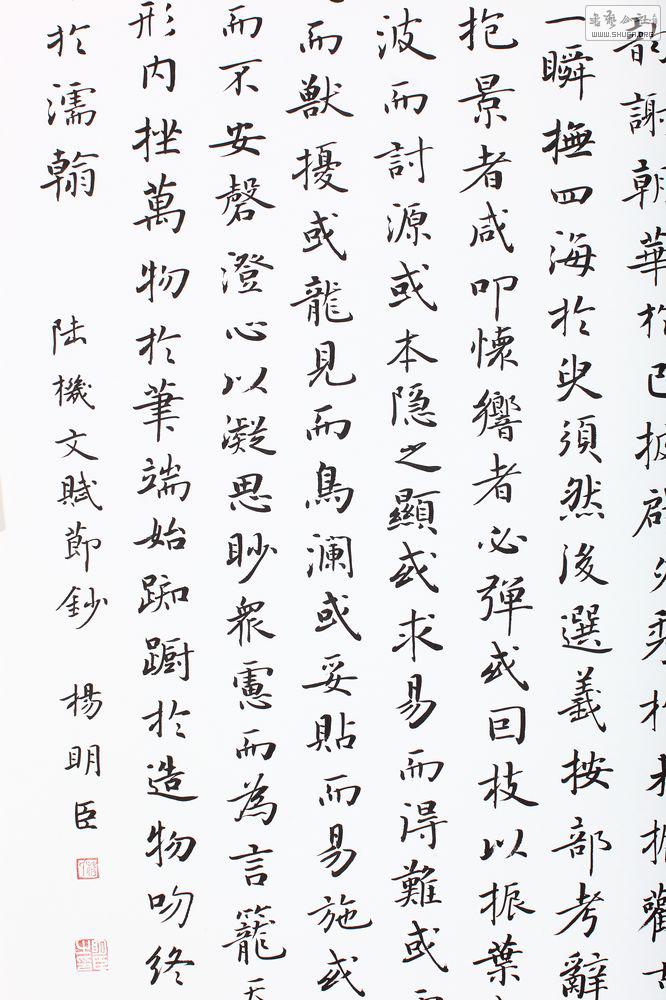 韵謝朝華於已披啟夕秀於未振觀古
一瞬撫四海於臾須然後選義按部考辭
抱景者咸叩懷響者必彈或因枝以振葉
波而討源或本隐之顯或求易而得難或
而獸擾或龍見而鳥澜或妥貼而易施或
而不安罄澄心以凝思眇衆慮而為言籠天
形内挫萬物於筆端始踟蹰於造物吻終
於濡翰
陸機文賦節鈔 楊明臣
WWW.SHUFA.ORG